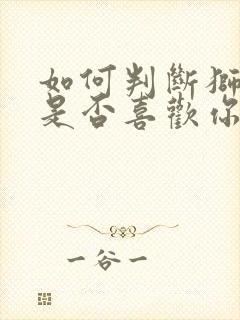 如何判斷獅
是否喜歡你
一谷一